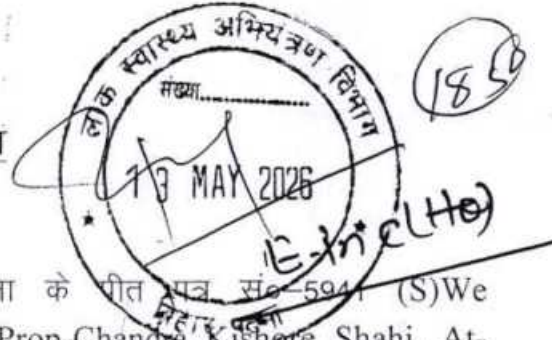 लोक स्वास्थ्य अभियंत्रण विभाग
संख्या..............
13 MAY 2026
बिहार, पटना
1858
E-in-C(HQ)
के पीत पत्र सं०-5941 (S)We
Prop-Chandra Kishore Shahi, At-